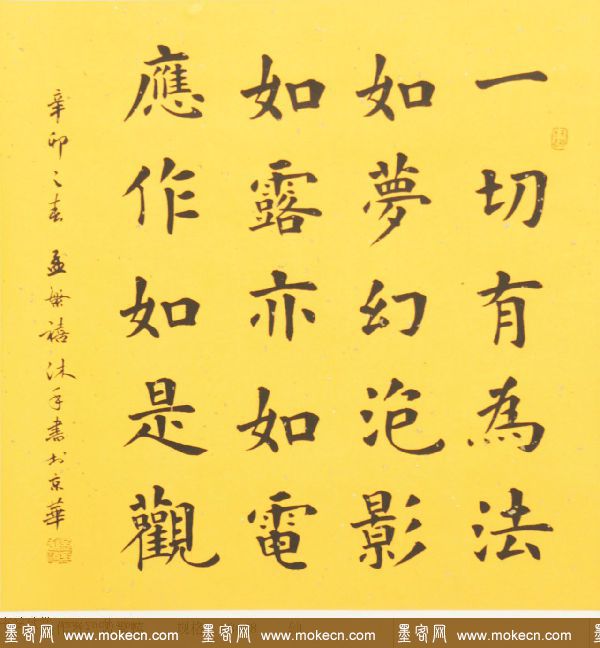 一切有為法
如夢幻泡影
如露亦如電
應作如是觀
辛卯之春 孟繁禧沐手書於京華
墨客网 www.mokecn.com 墨客网 www.mokecn.com 墨客网 www.mokecn.com